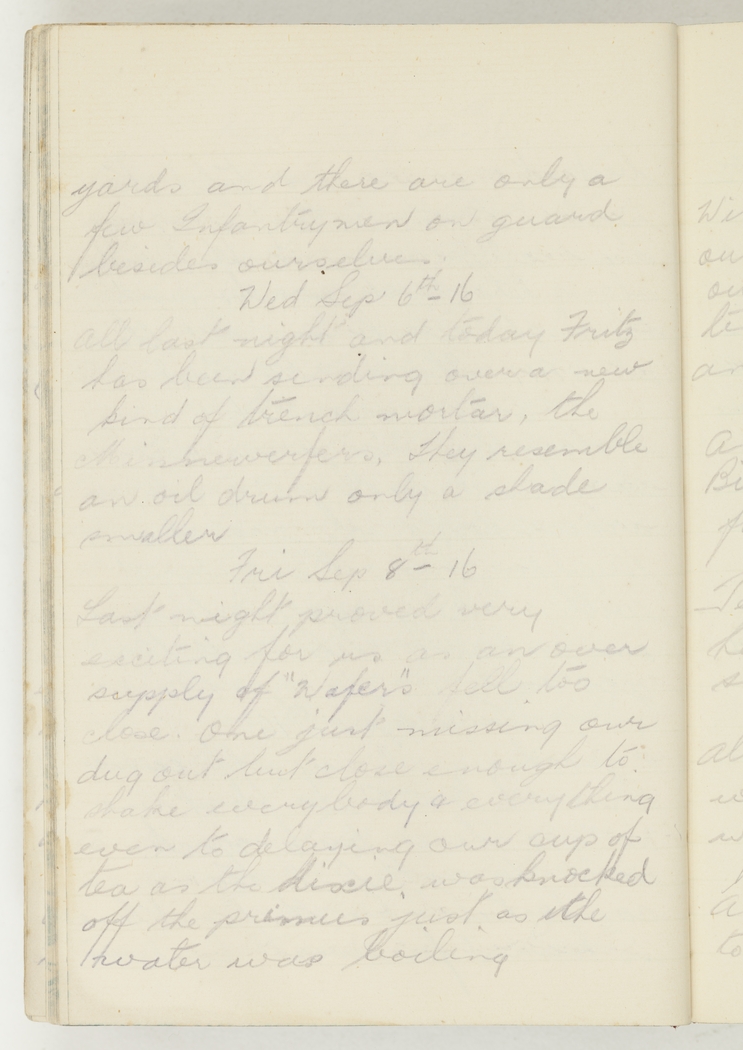 yards and there are only a
few Infantrymen on guard
besides ourselves.
Wed Sep 6th - 16
All last night and today Fritz
has been sending over a new
kind of trench mortar, the
Minnewerfers, They resemble
an oil drum only a shade
smaller
Fri Sep 8th - 16
Last night proved very
exciting for us as an over
supply of "Wafer"s fell too
close. One just missing our
dug out but close enough to
shake everybody & everything
even to delaying our cup of
tea as the dixie, was knocked
off the primus just as the
water was boiling